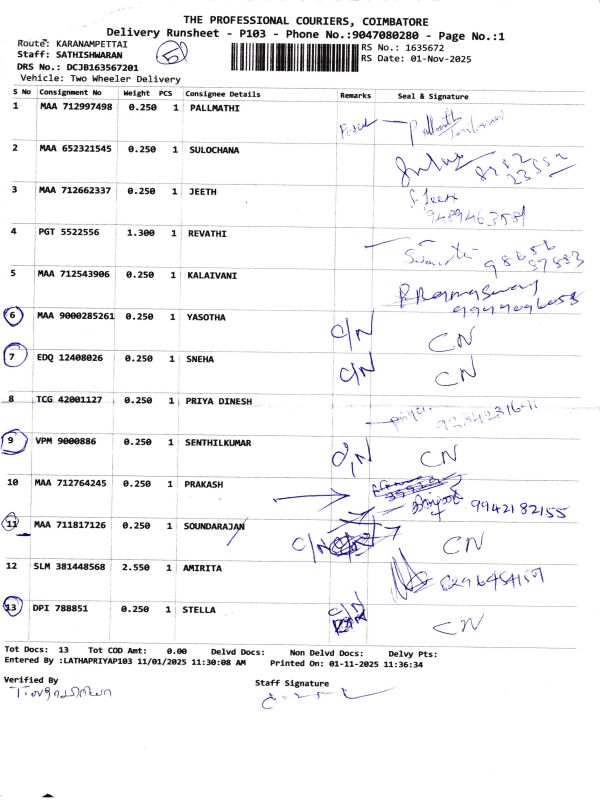 THE PROFESSIONAL COURIERS, COIMBATORE
Delivery Runsheet - P103 - Phone No.:9047080280 - Page No.:1
Route: KARANAMPETTAI
RS No.: 1635672
Staff: SATHISHWARAN
RS Date: 01-Nov-2025
DRS No.: DCJB163567201
Vehicle: Two Wheeler Delivery
S No Consignment No Weight PCS Consignee Details Remarks Seal & Signature
1 MAA 712997498 0.250 1 PALLMATHI
2 MAA 652321545 0.250 1 SULOCHANA
3 MAA 712662337 0.250 1 JEETH
4 PGT 5522556 1.300 1 REVATHI
5 MAA 712543906 0.250 1 KALAIVANI
6 MAA 9000285261 0.250 1 YASOTHA C/N CN
7 EDQ 12408026 0.250 1 SNEHA C/N CN
8 TCG 42001127 0.250 1 PRIYA DINESH
9 VPM 9000886 0.250 1 SENTHILKUMAR C/N CN
10 MAA 712764245 0.250 1 PRAKASH 9942182155
11 MAA 711817126 0.250 1 SOUNDARAJAN C/N CN
12 SLM 381448568 2.550 1 AMIRITA
13 DPI 788851 0.250 1 STELLA C/N CN
Tot Docs: 13 Tot COD Amt: 0.00 Delvd Docs: Non Delvd Docs: Delvy Pts:
Entered By :LATHAPRIYAP103 11/01/2025 11:30:08 AM Printed On: 01-11-2025 11:36:34
Verified By Staff Signature